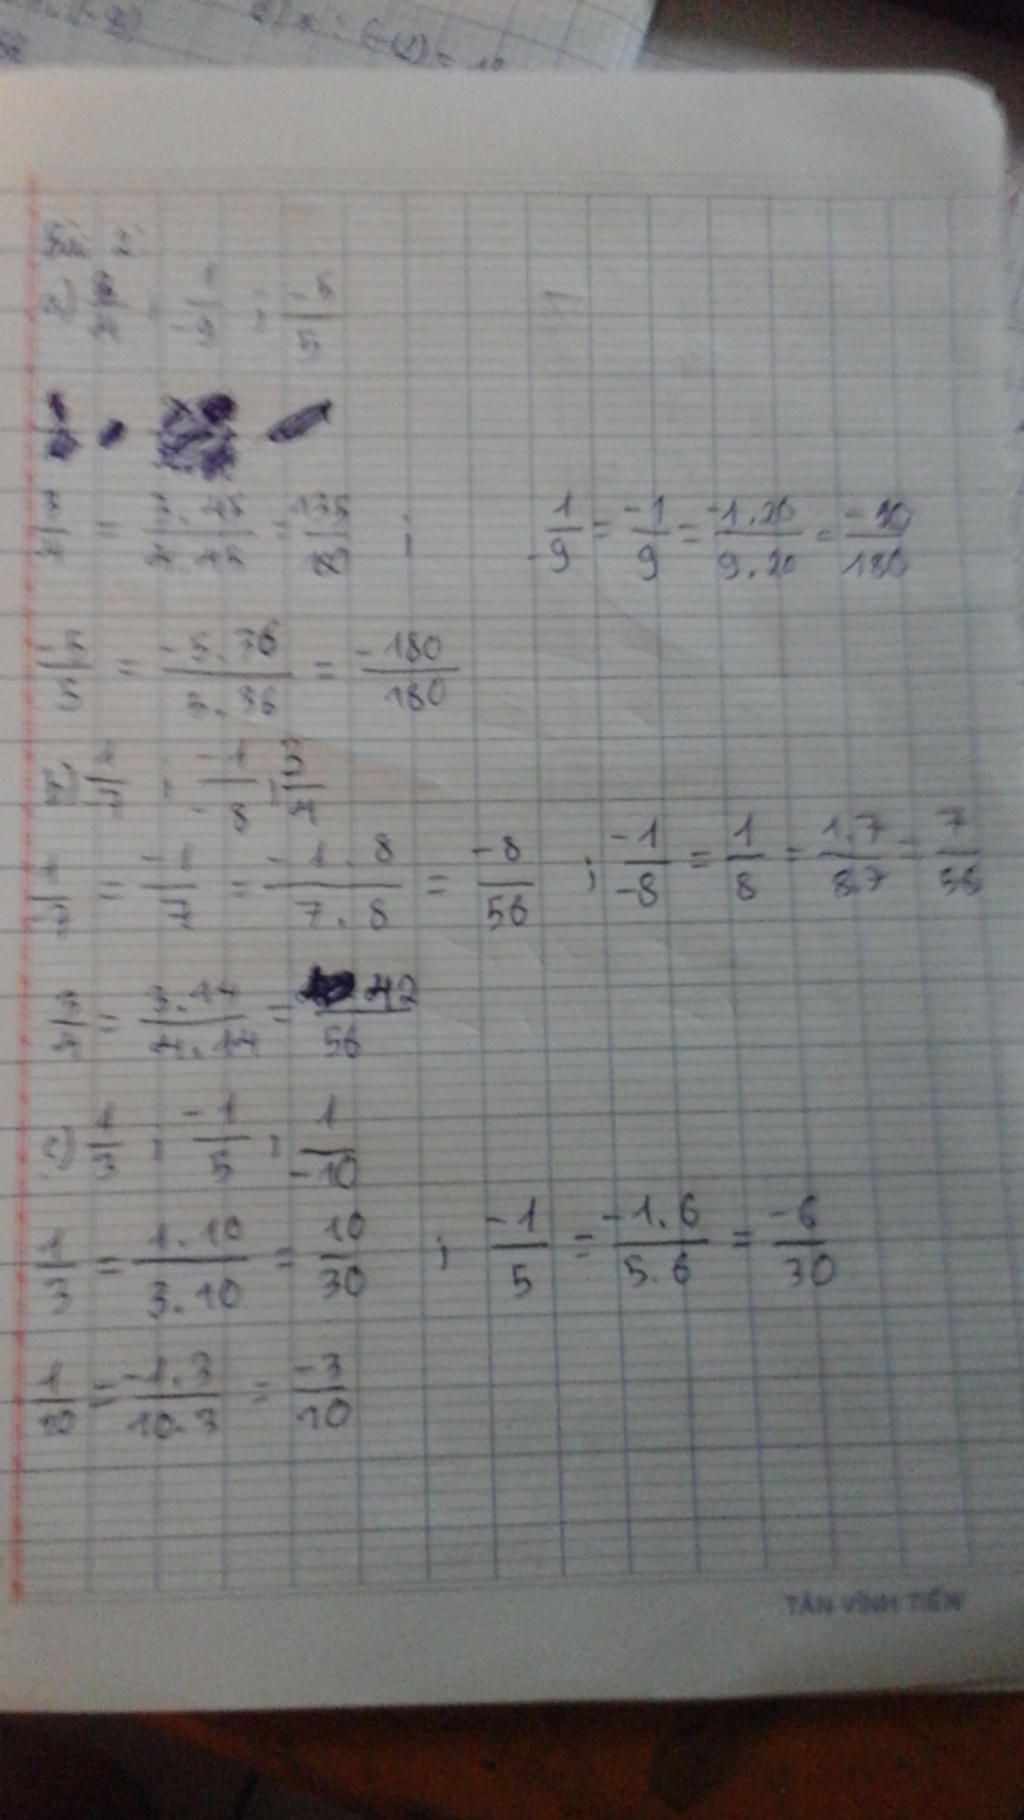 a) 3/4 ; 1/-9 ; -5/5
3/4 = 3.45/4.45 = 135/180 ; 1/-9 = -1/9 = -1.20/9.20 = -20/180
-5/5 = -5.36/5.36 = -180/180
-1/-8 ; 3/4
= -1/7 = -1.8/7.8 = -8/56 ; -1/-8 = 1/8 = 1.7/8.7 = 7/56
3/4 = 3.14/4.14 = 42/56
c) 1/3 ; -1/5 ; 1/-10
1/3 = 1.10/3.10 = 10/30 ; -1/5 = -1.6/5.6 = -6/30
1/10 = -1.3/10.3 = -3/10
TÂN VĨNH TIẾN